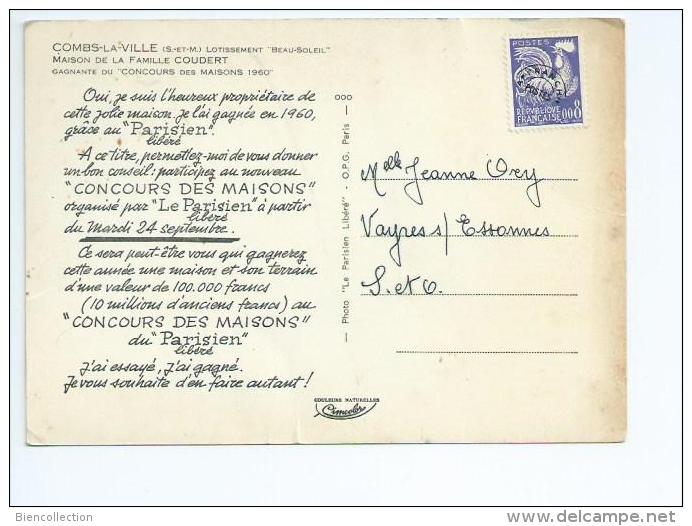 COMBS-LA-VILLE (S.-ET-M.) LOTISSEMENT "BEAU-SOLEIL"
MAISON DE LA FAMILLE COUDERT
GAGNANTE DU "CONCOURS DES MAISONS 1960"
Oui, je suis l'heureux propriétaire de
cette jolie maison. Je l'ai gagnée en 1960,
grâce au "Parisien".
libéré
A ce titre, permettez-moi de vous donner
un bon conseil: participez au nouveau
"CONCOURS DES MAISONS"
organisé par "Le Parisien" à partir
libéré
du Mardi 24 septembre.
Ce sera peut-être vous qui gagnerez
cette année une maison et son terrain
d'une valeur de 100.000 francs
(10 millions d'anciens francs) au
"CONCOURS DES MAISONS"
du "Parisien"
libéré
J'ai essayé, j'ai gagné.
Je vous souhaite d'en faire autant!
ooo
— Photo "Le Parisien Libéré" - O.P.G. Paris —
COULEURS NATURELLES
Cimcolor
POSTES
AFFRANCHts
POSTES
REPUBLIQUE
FRANÇAISE 0,08
Melle Jeanne Ory
Vayres s/ Essonnes
S. et O.
Biencollection
www.delcampe.net